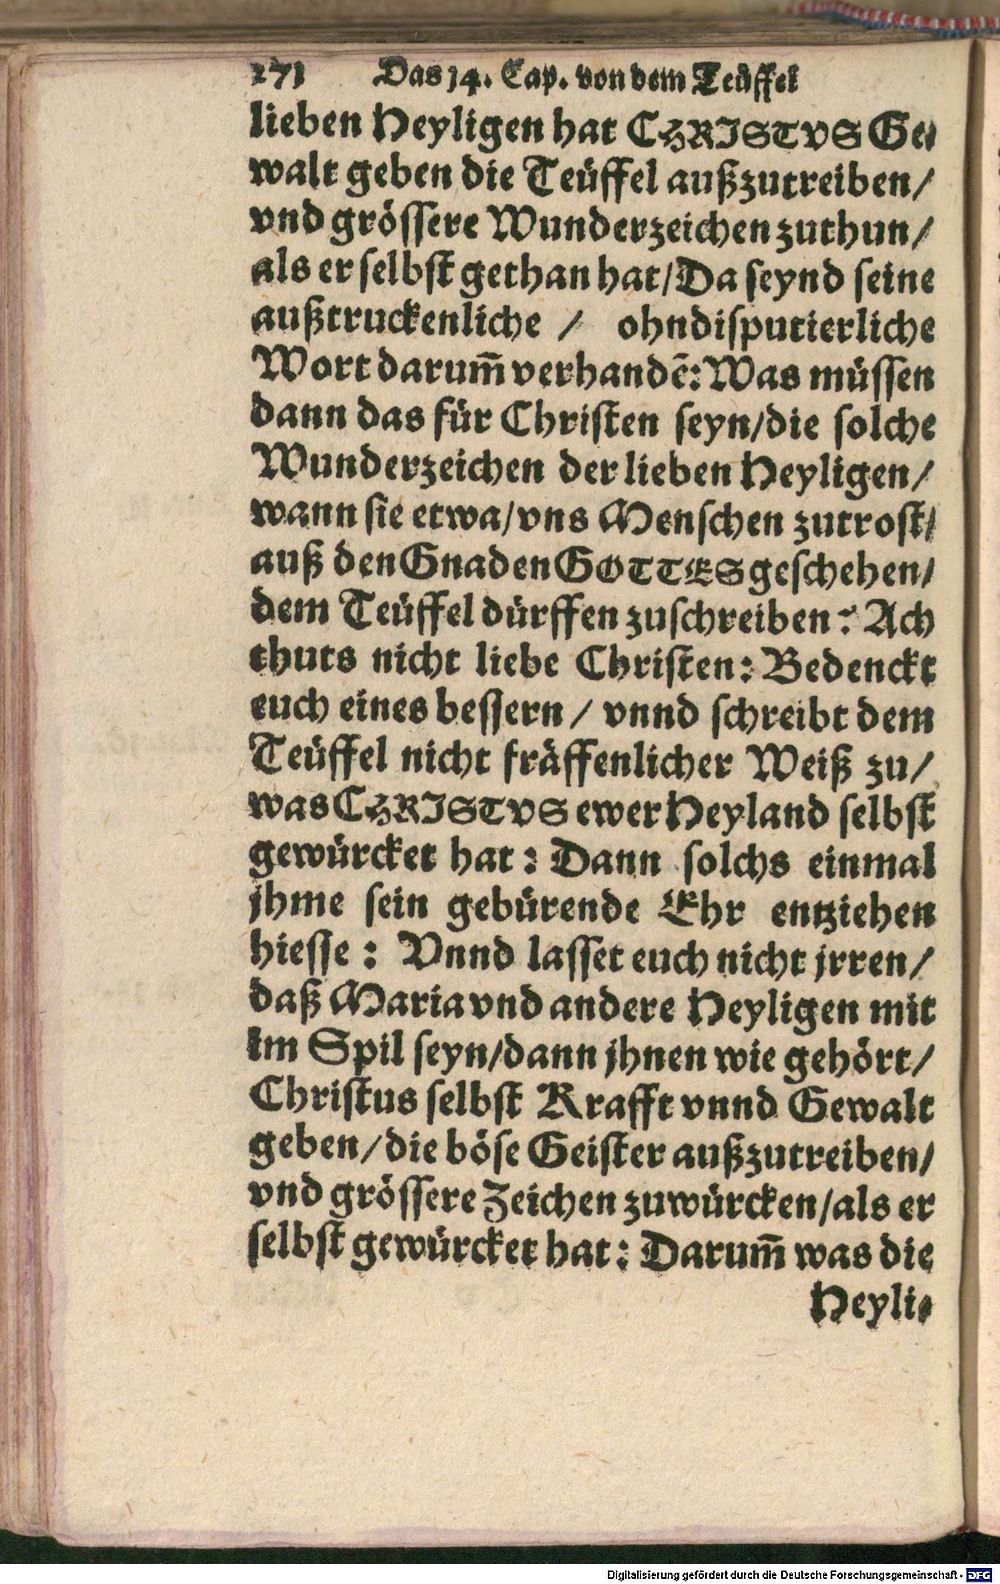 171 Das 14. Cap. von dem Teüffel
lieben Heyligen hat CHRISTVS Ge⸗
walt geben die Teüffel außzutreiben/
vnd grössere Wunderzeichen zuthun/
als er selbst gethan hat/Da seynd seine
außtruckenliche / ohndisputierliche
Wort darum̃ verhandẽ: Was müssen
dann das für Christen seyn/die solche
Wunderzeichen der lieben Heyligen/
wann sie etwa/vns Menschen zutrost/
auß den Gnaden GOTTES geschehen/
dem Teüffel dürffen zuschreiben? Ach
thuts nicht liebe Christen: Bedenckt
euch eines bessern / vnnd schreibt dem
Teüffel nicht fräffenlicher Weiß zu/
was CHRISTVS ewer Heyland selbst
gewürcket hat: Dann solchs einmal
jhme sein gebürende Ehr entziehen
hiesse: Vnnd lasset euch nicht jrren/
daß Maria vnd andere Heyligen mit
im Spil seyn/dann jhnen wie gehört/
Christus selbst Krafft vnnd Gewalt
geben/die böse Geister außzutreiben/
vnd grössere Zeichen zuwürcken/als er
selbst gewürcket hat: Darum̃ was die
Heyli⸗
Digitalisierung gefördert durch die Deutsche Forschungsgemeinschaft - DFG